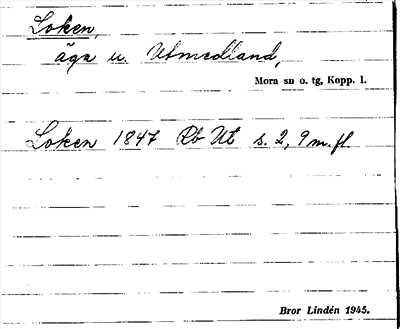 Loken,
äga u. Utmedland,
Mora sn o. tg, Kopp. l.
Loken 1847 Rb Ut s. 2, 9 m.fl.
Bror Lindén 1945.